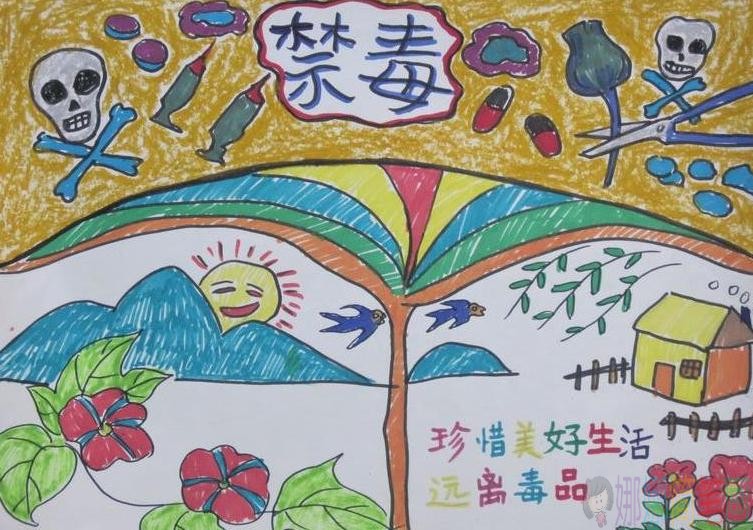 禁毒
珍惜美好生活
远离毒品
娜